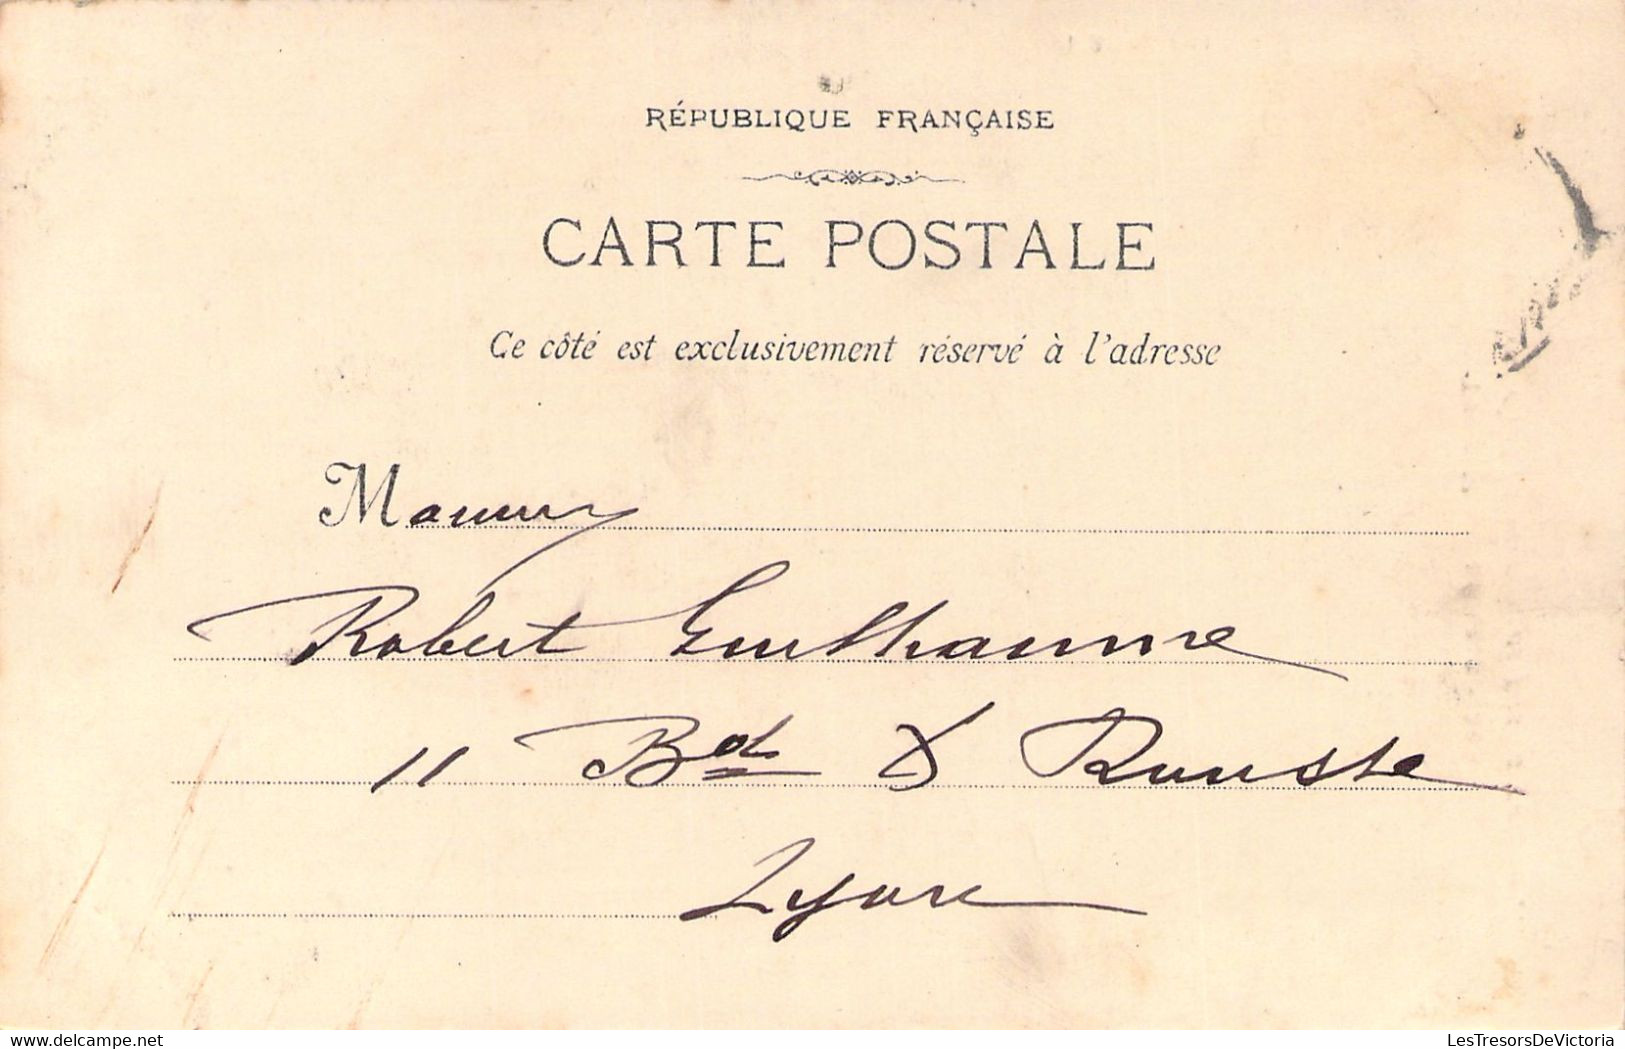 RÉPUBLIQUE FRANÇAISE
CARTE POSTALE
Ce côté est exclusivement réservé à l'adresse
Robert Guilhaume
11 Bd X Rousse
Lyon
LesTresorsDeVictoria
delcampe.net